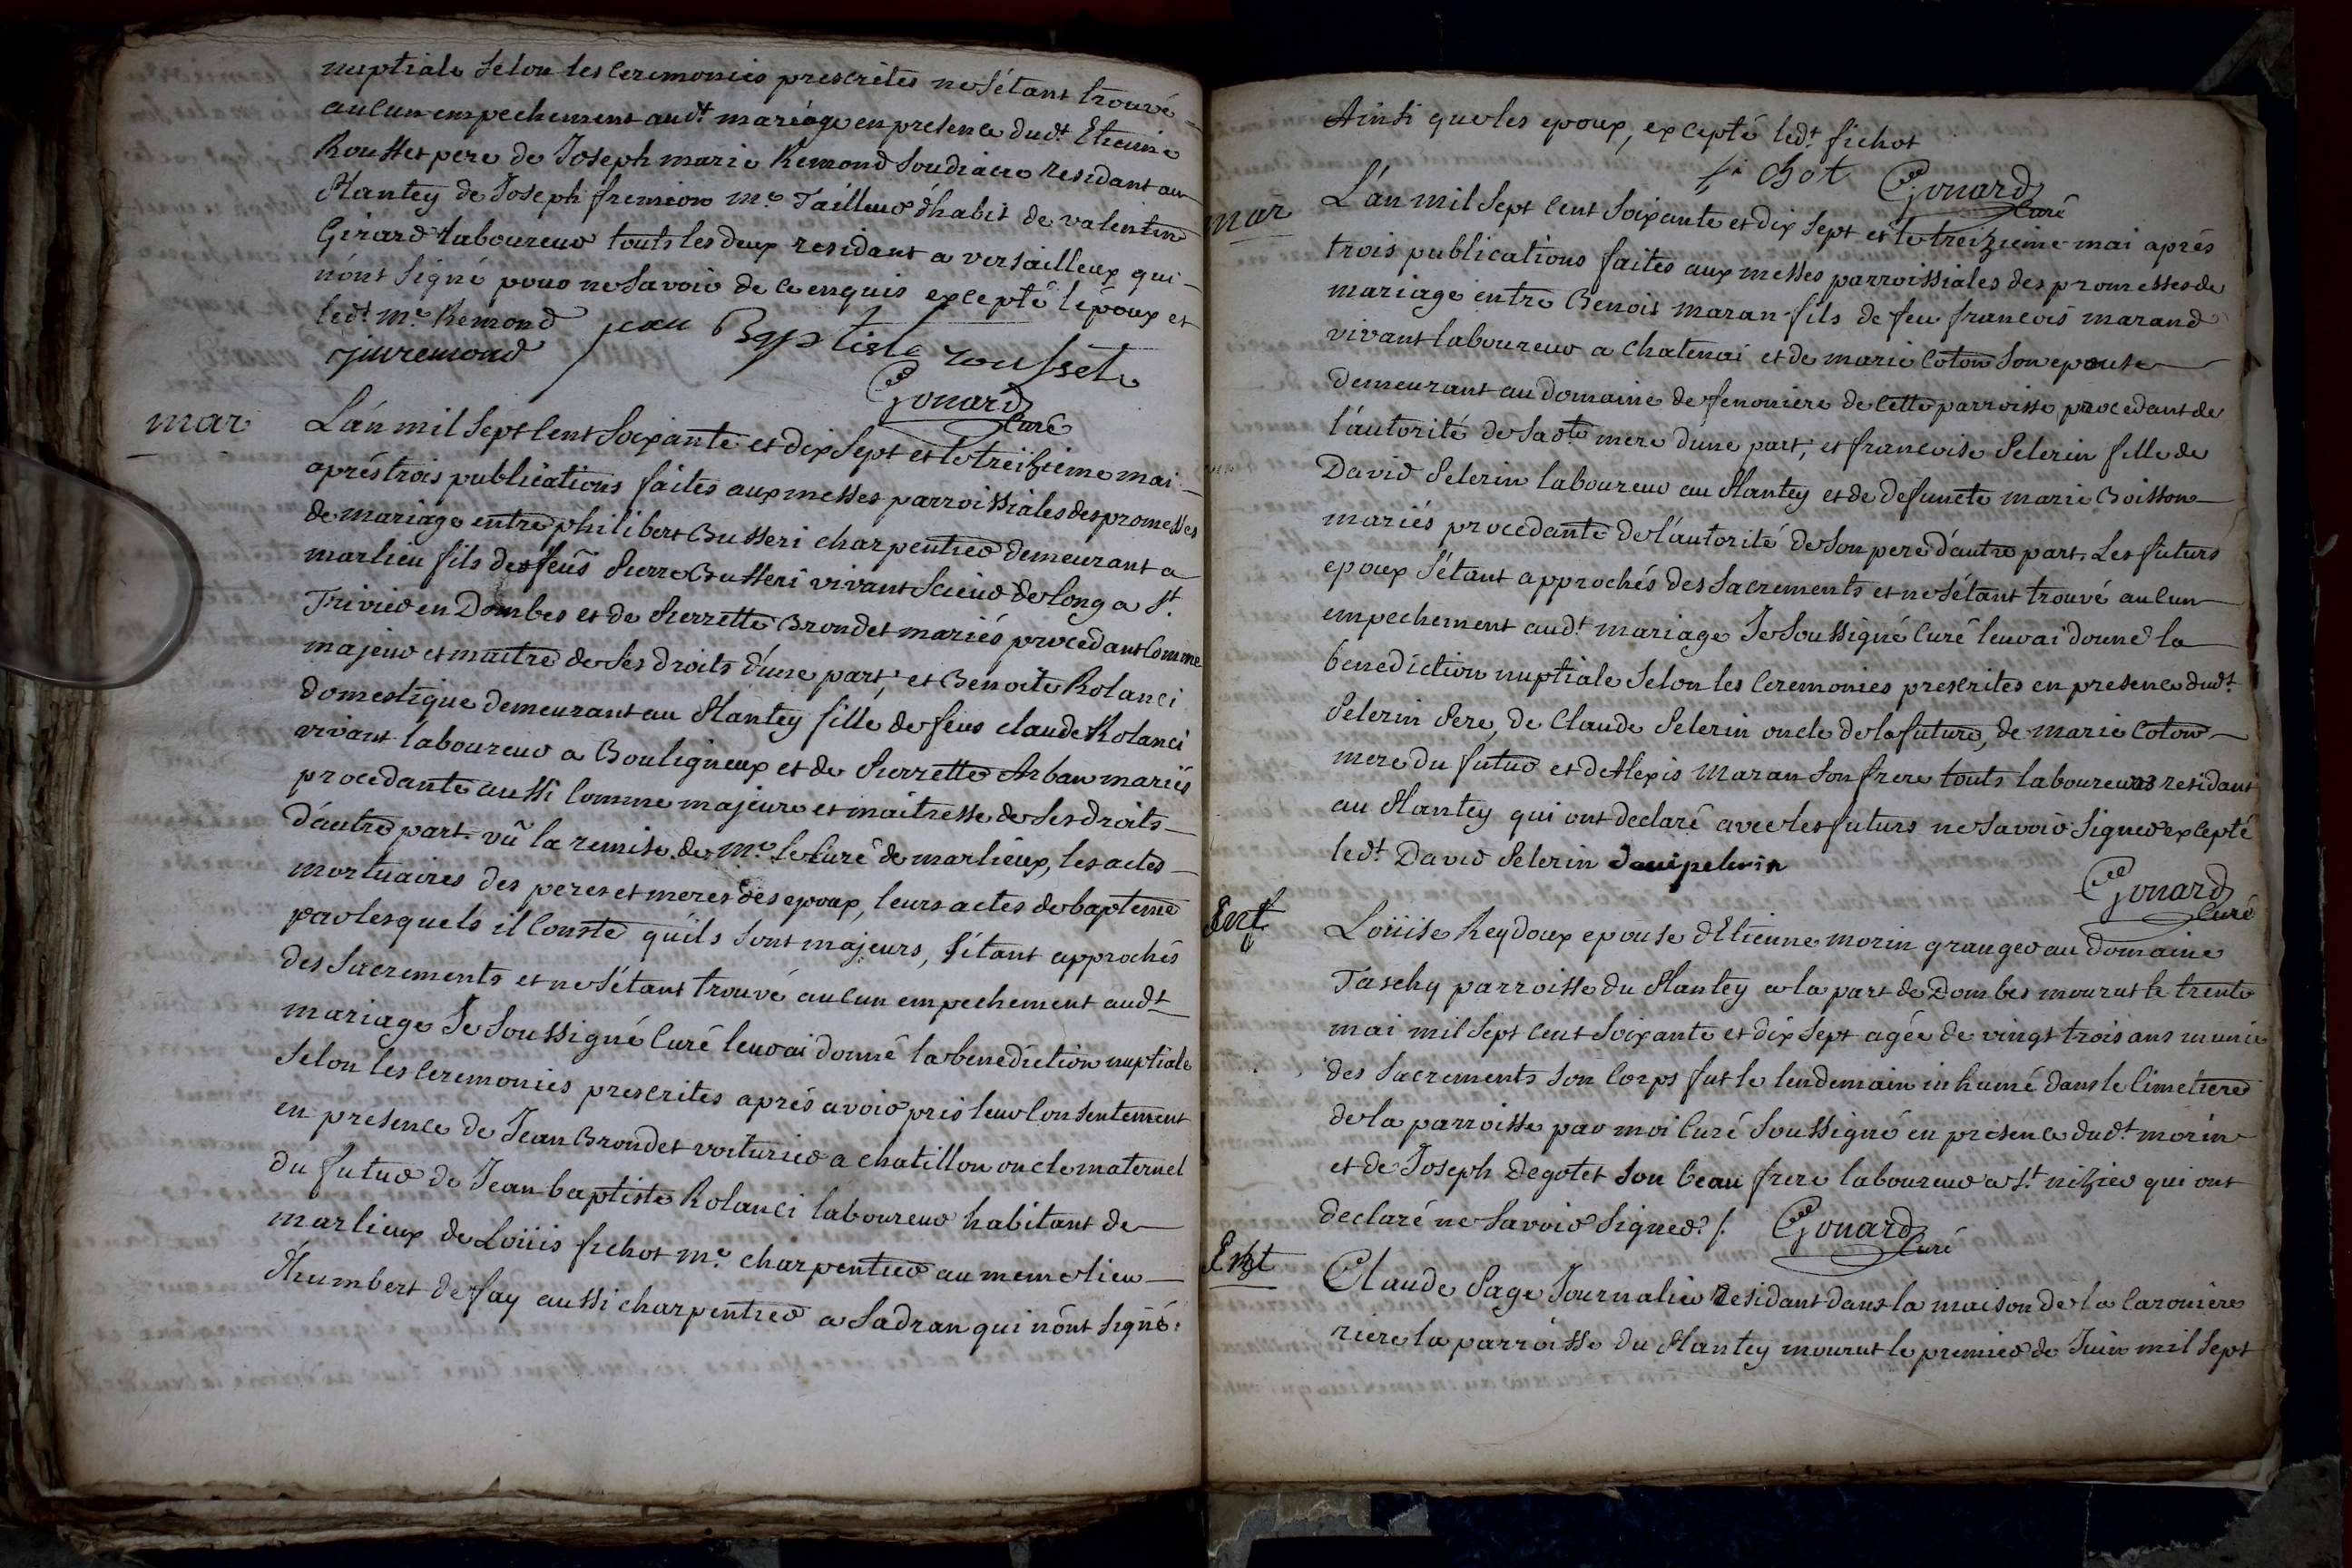 nuptiale selon les ceremonies prescrites ne s'étant trouvé
aucun empechement audt mariage en presence dudt Etienne
Rousset pere de Joseph marie Remond soudiacre residant au
Plantey de Joseph fremion me Tailleur d'habit de valentin
Girard laboureur touts les deux residant a versailleux qui
n'ont signé pour ne savoir de ce enquis excepté l'epoux et
ledt me Remond jean Baptiste rousset
jmremond
Gonard
Curé
mar
L'an mil sept cent soixante et dix sept et le treizieme mai
aprés trois publications faites aux messes parroissiales des promesses
de mariage entre philibert Busseri charpentier demeurant a
marlieu fils des feus Pierre Busseri vivant scieur de long a St.
Trivier en Dombes et de Pierrette Brondet mariés procedant comme
majeur et maitre de ses droits d'une part, et Benoite Rolanci
domestique demeurant au Plantey fille de feus claude Rolanci
vivant laboureur a Bouligneux et de Pierrette Arban mariés
procedante aussi comme majeure et maitresse de ses droits
d'autre part. vû la remise de me le curé de marlieux, les actes
mortuaires des peres et meres des epoux, leurs actes de bapteme
par lesquels il conste qu'ils sont majeurs, s'étant approchés
des sacrements et ne s'étant trouvé aucun empechement audt
mariage Je soussigné curé leur ai donné la benediction nuptiale
selon les ceremonies prescrites aprés avoir pris leur consentement
en presence de Jean Brondet voiturier a chatillon oncle maternel
du futur de Jean baptiste Rolanci laboureur habitant de
marlieux de Loüis fichot me charpentier au meme lieu
d'humbert de fay aussi charpentier a Sadran qui n'ont signé
Ainsi que les epoux, excepté ledt fichot
fichot Gonard
Curé
mar
L'an mil sept cent soixante et dix sept et le treizieme mai aprés
trois publications faites aux messes parroissiales des promesses de
mariage entre Benoit maran fils de feu francois marand
vivant laboureur a chatenai et de marie coton son epouse
demeurant au domaine de fenoniere de cette parroisse procedant de
l'autorité de sadte mere d'une part, et francoise Pelerin fille de
David Pelerin laboureur au Plantey et de defuncte marie Boisson
mariés procedante de l'autorité de son pere d'autre part. Les futurs
epoux s'étant approchés des sacrements et ne s'étant trouvé aucun
empechement audt mariage Je soussigné curé leur ai donné la
benediction nuptiale selon les ceremonies prescrites en presence dudt
Pelerin Pere, de Claude Pelerin oncle de la future, de marie coton
mere du futur et d'Alexis maran son frere touts laboureurs residant
au Plantey qui ont declaré avec les futurs ne savoir signer excepté
ledt David Pelerin davipelerin
Gonard
Curé
Ent
Loüise Reydoux epouse d'Etienne morin granger au domaine
Taschy parroisse du Plantey a la part de Dombes mourut le trente
mai mil sept cent soixante et dix sept agée de vingt trois ans munie
des sacrements son corps fut le lendemain inhumé dans le cimetiere
de la parroisse par moi curé soussigné en presence dudt morin
et de Joseph degotet son beau frere laboureur a St. nizier qui ont
declaré ne savoir signer ./. Gonard
Curé
Ent
Claude Sage Journalier residant dans la maison de la caroniere
riere la parroisse du Plantey mourut le premier de Juin mil sept